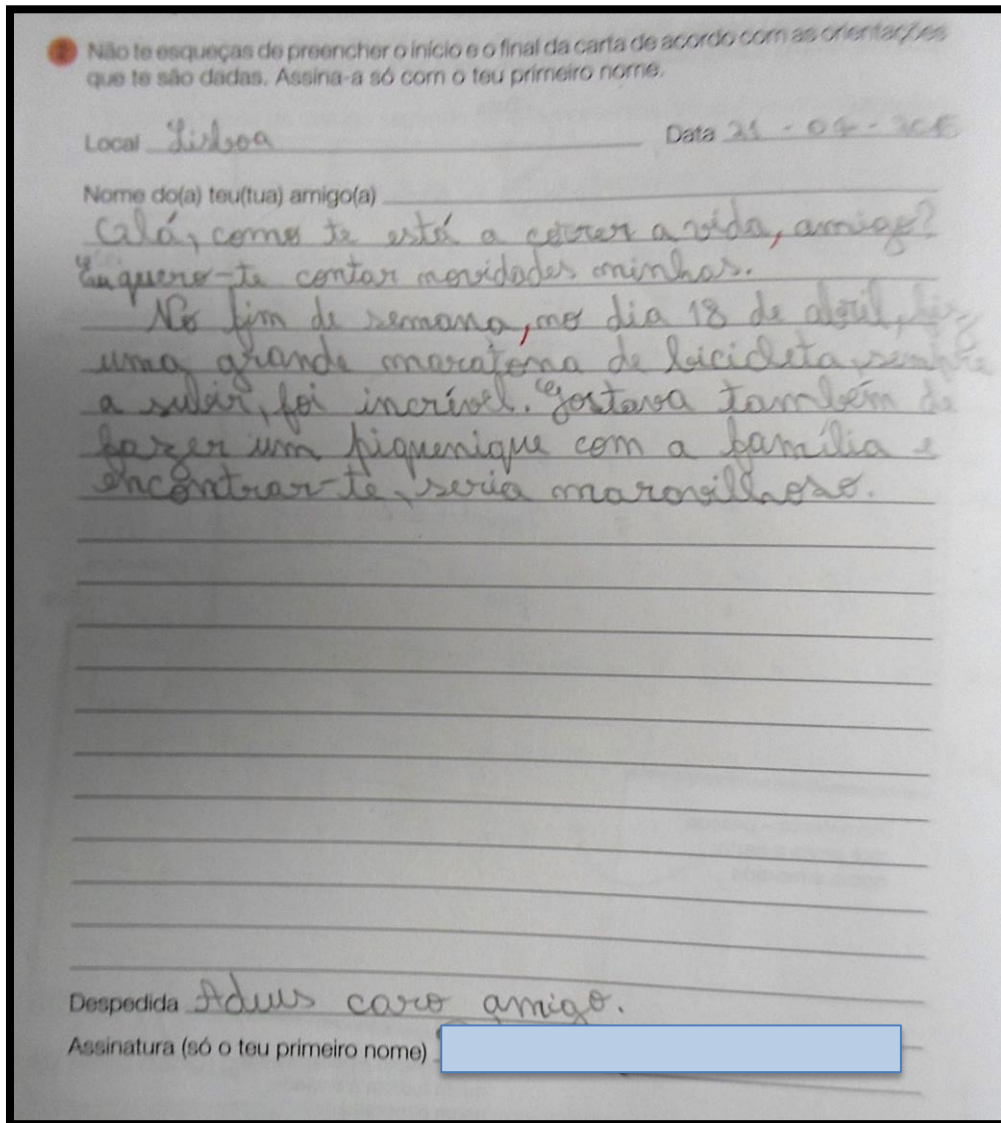 2 Não te esqueças de preencher o início e o final da carta de acordo com as orientações
que te são dadas. Assina-a só com o teu primeiro nome.
Local Lisboa Data 21 - 04 -
Nome do(a) teu(tua) amigo(a)
Olá, como te está a correr a vida, amigo?
Eu quero-te contar novidades minhas.
No fim de semana, no dia 18 de abril, fiz
uma grande maratona de bicicleta, sempre
a subir, foi incrível. Gostava também de
fazer um piquenique com a família e
encontrar-te, seria maravilhoso.
Despedida Adeus caro amigo.
Assinatura (só o teu primeiro nome)